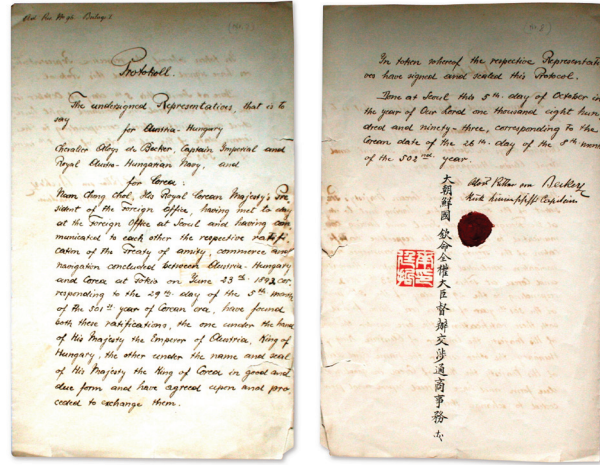 Protokoll.
The undersigned Representatives, that is to
say
for Austria-Hungary
Chevalier Aloys de Becker, Captain Imperial and
Royal Austro-Hungarian Navy, and
for Corea:
Nam Chong Chol, His Royal Corean Majesty's Pre-
sident of the Foreign Office, having met to day
at the Foreign Office at Seoul and having com
municated to each other the respective ratifi-
cation of the Treaty of amity, commerce and
navigation concluded between Austria-Hungary
and Corea at Tokio on June 23rd 1892 cor,
responding to the 29th day of the 5th month
of the 501st year of Corean era, have found
both these ratifications, the one under the hand
of His Majesty the Emperor of Austria, King of
Hungary, the other under the name and seal
of His Majesty the King of Corea in good and
due form and have agreed upon and pro,
ceeded to exchange them.
In token whereof the respective Representati
ves have signed and sealed this Protocol.
Done at Seoul this 5th day of October in
the year of Our Lord one thousand eight hun,
dred and ninety-three, corresponding to the
Corean date of the 26th day of the 8th mon
of the 502nd year.
Ritter von Becker
大朝鮮國 欽命全權大臣督辦交涉通商事務